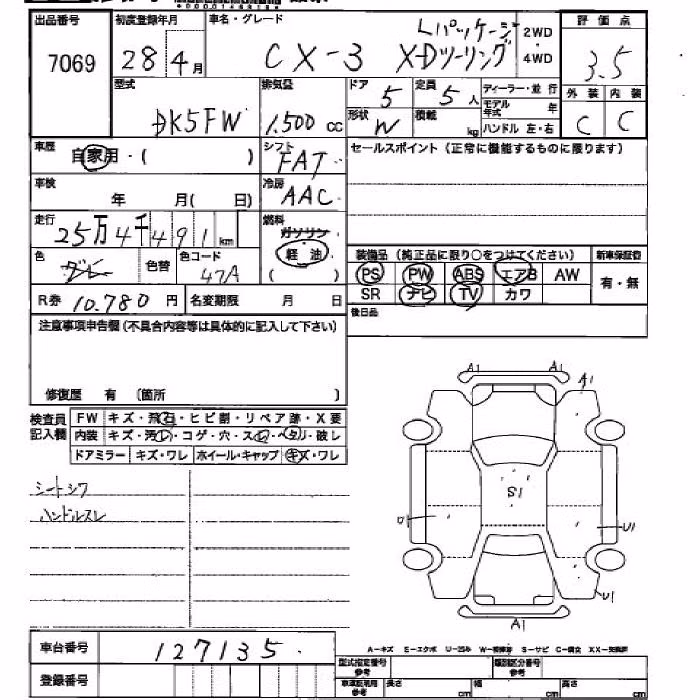 出品番号
7069
初度登録年月
28年4月
車名・グレード
CX-3 XDツーリング
Lパッケージ
2WD
・
4WD
評価点
3.5
外装 内装
C C
型式
DK5FW
排気量
1.500 cc
ドア
5
定員
5人
ディーラー・並行
モデル年式 年
ハンドル 左・右
形状
W
積載
kg
車歴
自家用・( )
シフト
FAT
セールスポイント (正常に機能するものに限ります)
車検
年 月( 日)
冷房
AAC
走行
25万4千491km
燃料
ガソリン
軽油
( )
色
グレー
色替
色コード
47A
装備品 (純正品に限り○をつけてください)
新車保証書
PS PW ABS エアB AW
有・無
SR ナビ TV カワ
R券 10.780円
名変期限 月 日
後日品
注意事項申告欄(不具合内容等は具体的に記入して下さい)
修復歴 有 〔箇所 〕
検査員
記入欄
FW キズ・飛石・ヒビ割・リペア跡・X要
内装 キズ・汚レ・コゲ・穴・スレ・ヘタリ・破レ
ドアミラー キズ・ワレ ホイール・キャップ キズ・ワレ
シートシワ
ハンドルスレ
A1 A1
A1
S1
U1
U1
A1
車台番号
127135
登録番号
A-キズ E-エクボ U-凹み W-板修跡 S-サビ C-腐食 XX-交換跡
型式指定番号
参考
類別区分番号
参考
車庫証明用
参考
長さ cm
幅 cm
高さ cm